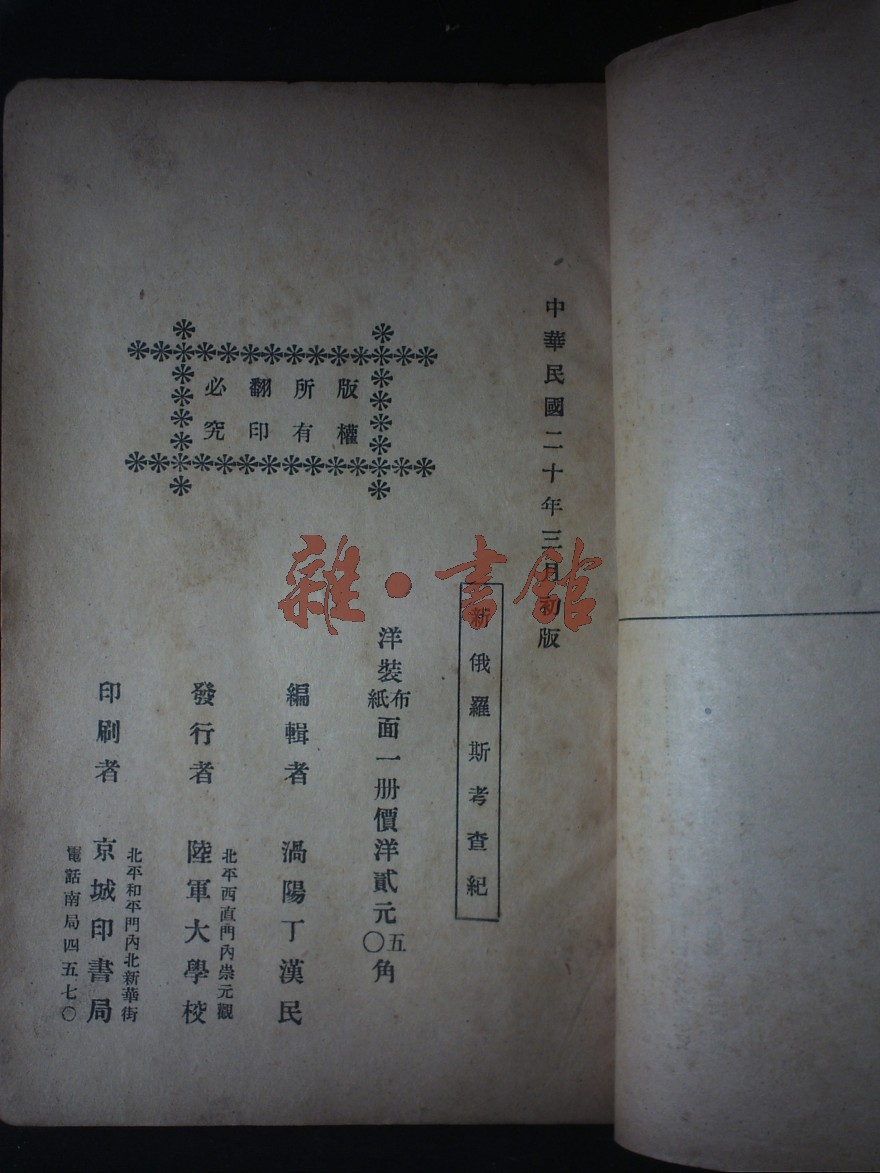 中華民國二十年三月初版
新俄羅斯考查紀
版權
所有
翻印
必究
洋裝布紙面一册價洋貳元五〇角
編輯者 渦陽丁漢民
發行者 陸軍大學校
北平西直門內崇元觀
印刷者 京城印書局
北平和平門內北新華街
電話南局四五七〇
雜·書館